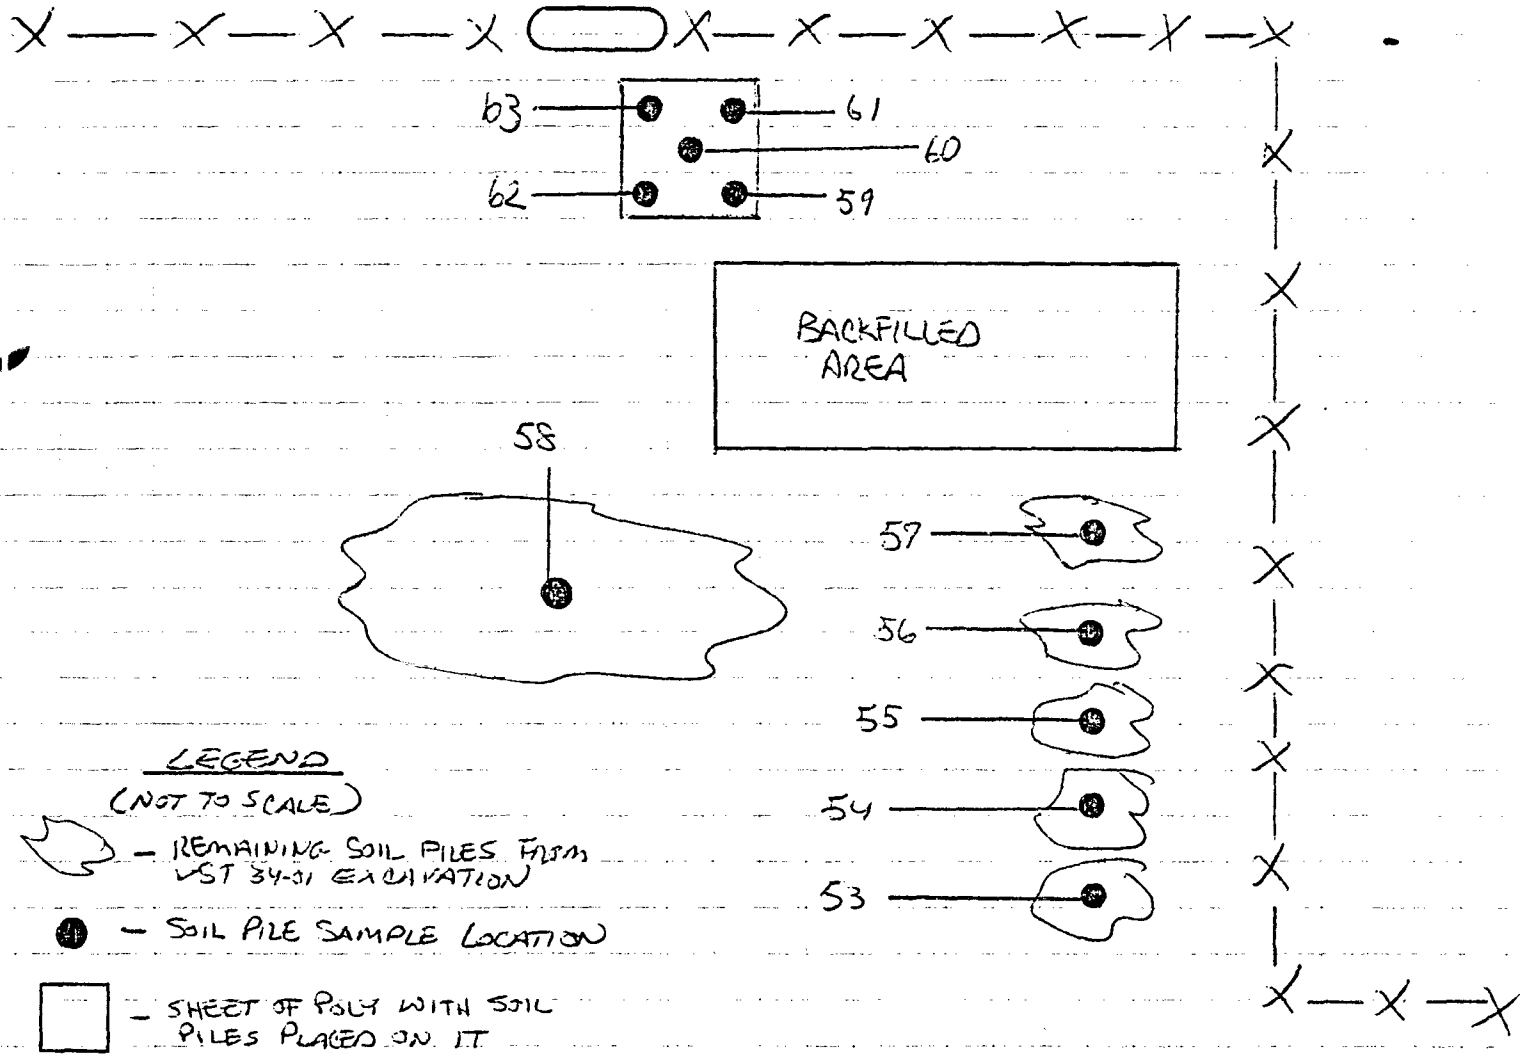 63
61
60
62
59
BACKFILLED
AREA
58
57
56
55
54
53
LEGEND
(NOT TO SCALE)
- REMAINING SOIL PILES FROM
UST 34-01 EXCAVATION
- SOIL PILE SAMPLE LOCATION
- SHEET OF POLY WITH SOIL
PILES PLACED ON IT